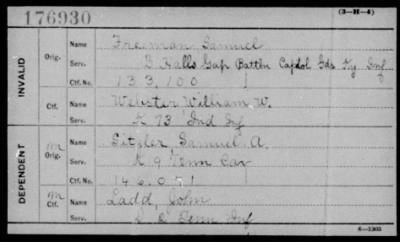 176930
(3-H-4)
INVALID
Orig.
Name Freeman Samuel
Serv. D Halls Gap Battln Capitol Gds Ky Inf
Ctf. No. 133,100
Ctf.
Name Webster William W.
Serv. K 73 Ind Inf
DEPENDENT
m
Orig.
Name Sitzler, Samuel A.
Serv. K 9 Tenn Cav
Ctf. No. 146.071
m
Ctf.
Name Ladd, John
Serv. Tenn Inf